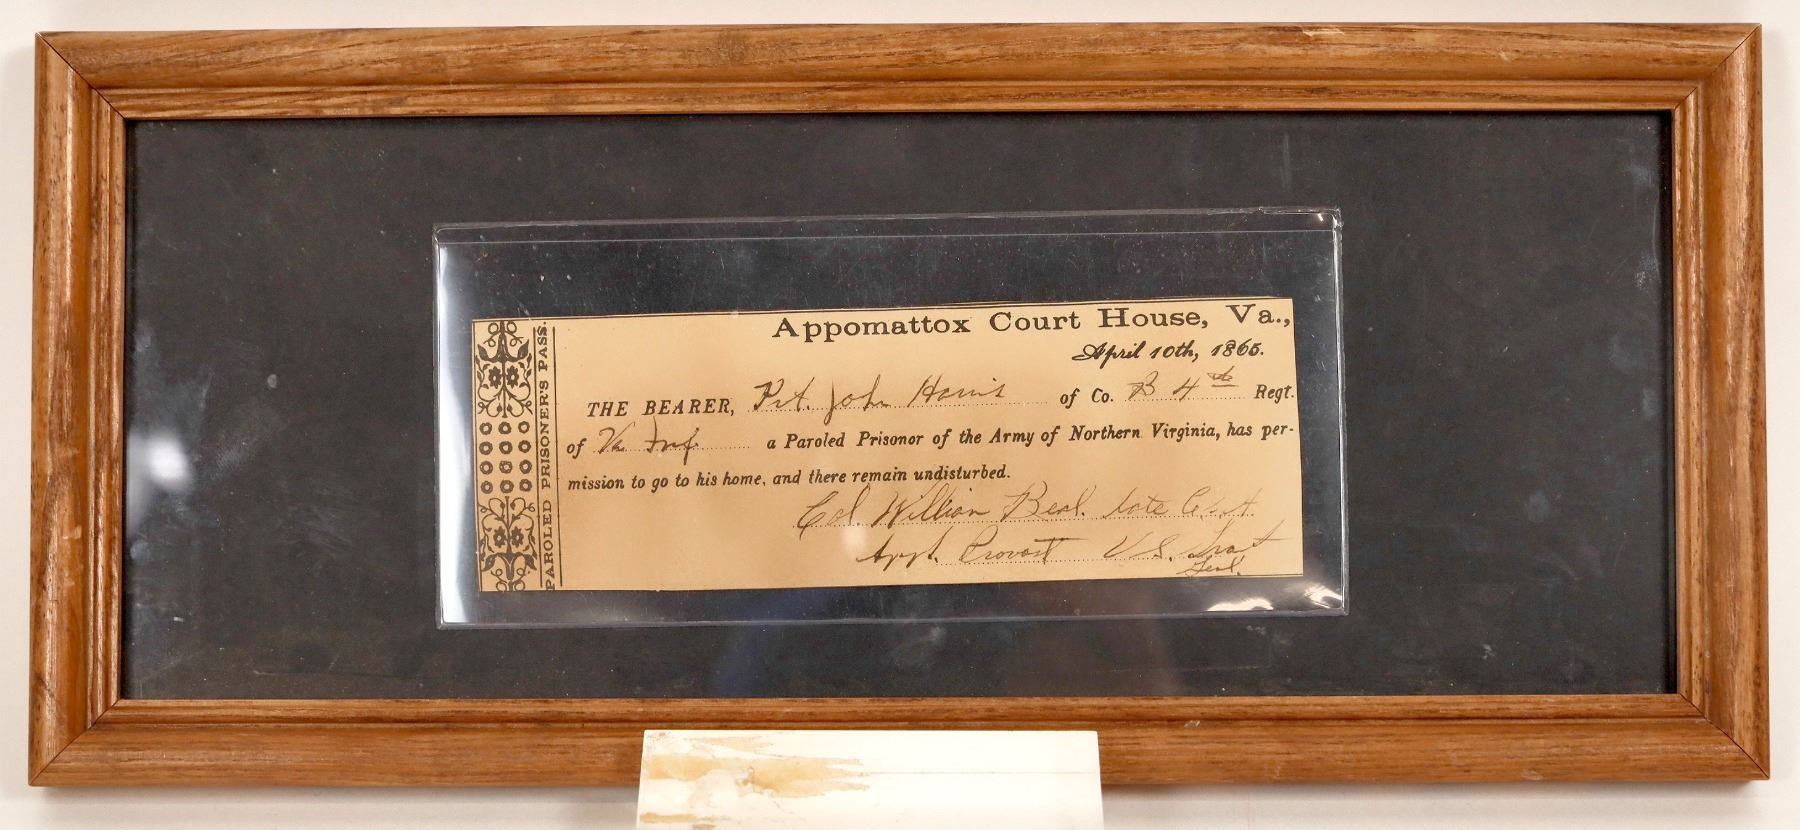 PAROLED PRISONER'S PASS.
Appomattox Court House, Va.,
April 10th, 1865.
THE BEARER, Pvt. John Harris of Co. B 4th Regt.
of Va Inf. a Paroled Prisonor of the Army of Northern Virginia, has per-
mission to go to his home, and there remain undisturbed.
Col. William Beal.
Provost U.S.